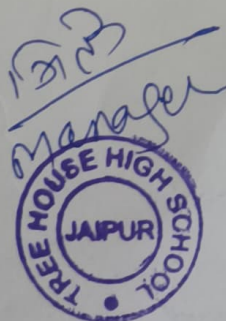 Manager
TREE HOUSE HIGH SCHOOL
JAIPUR